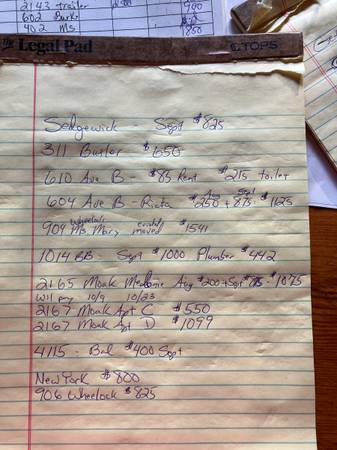 2143 trailer 900
602 Burk
402 Ms 850
the Legal Pad TOPS
Sedgewick Sept $825
311 Butler - $650
610 Ave B - $85 Rent $215 toilet
604 Ave B - Rieta Aug $250 + Sept 875 - $1125
904 Wheelock Ms. Mary moved $1541
1014 BB - Sept $1000 Plumber $442
2165 Monk Aug $200 + Sept $875 - $1075
Will pay 10/9 10/23
2167 Monk Apt C $550
2167 Monk Apt D $1099
4115 - Bal $400 Sept
New York $800
906 Wheelock $825